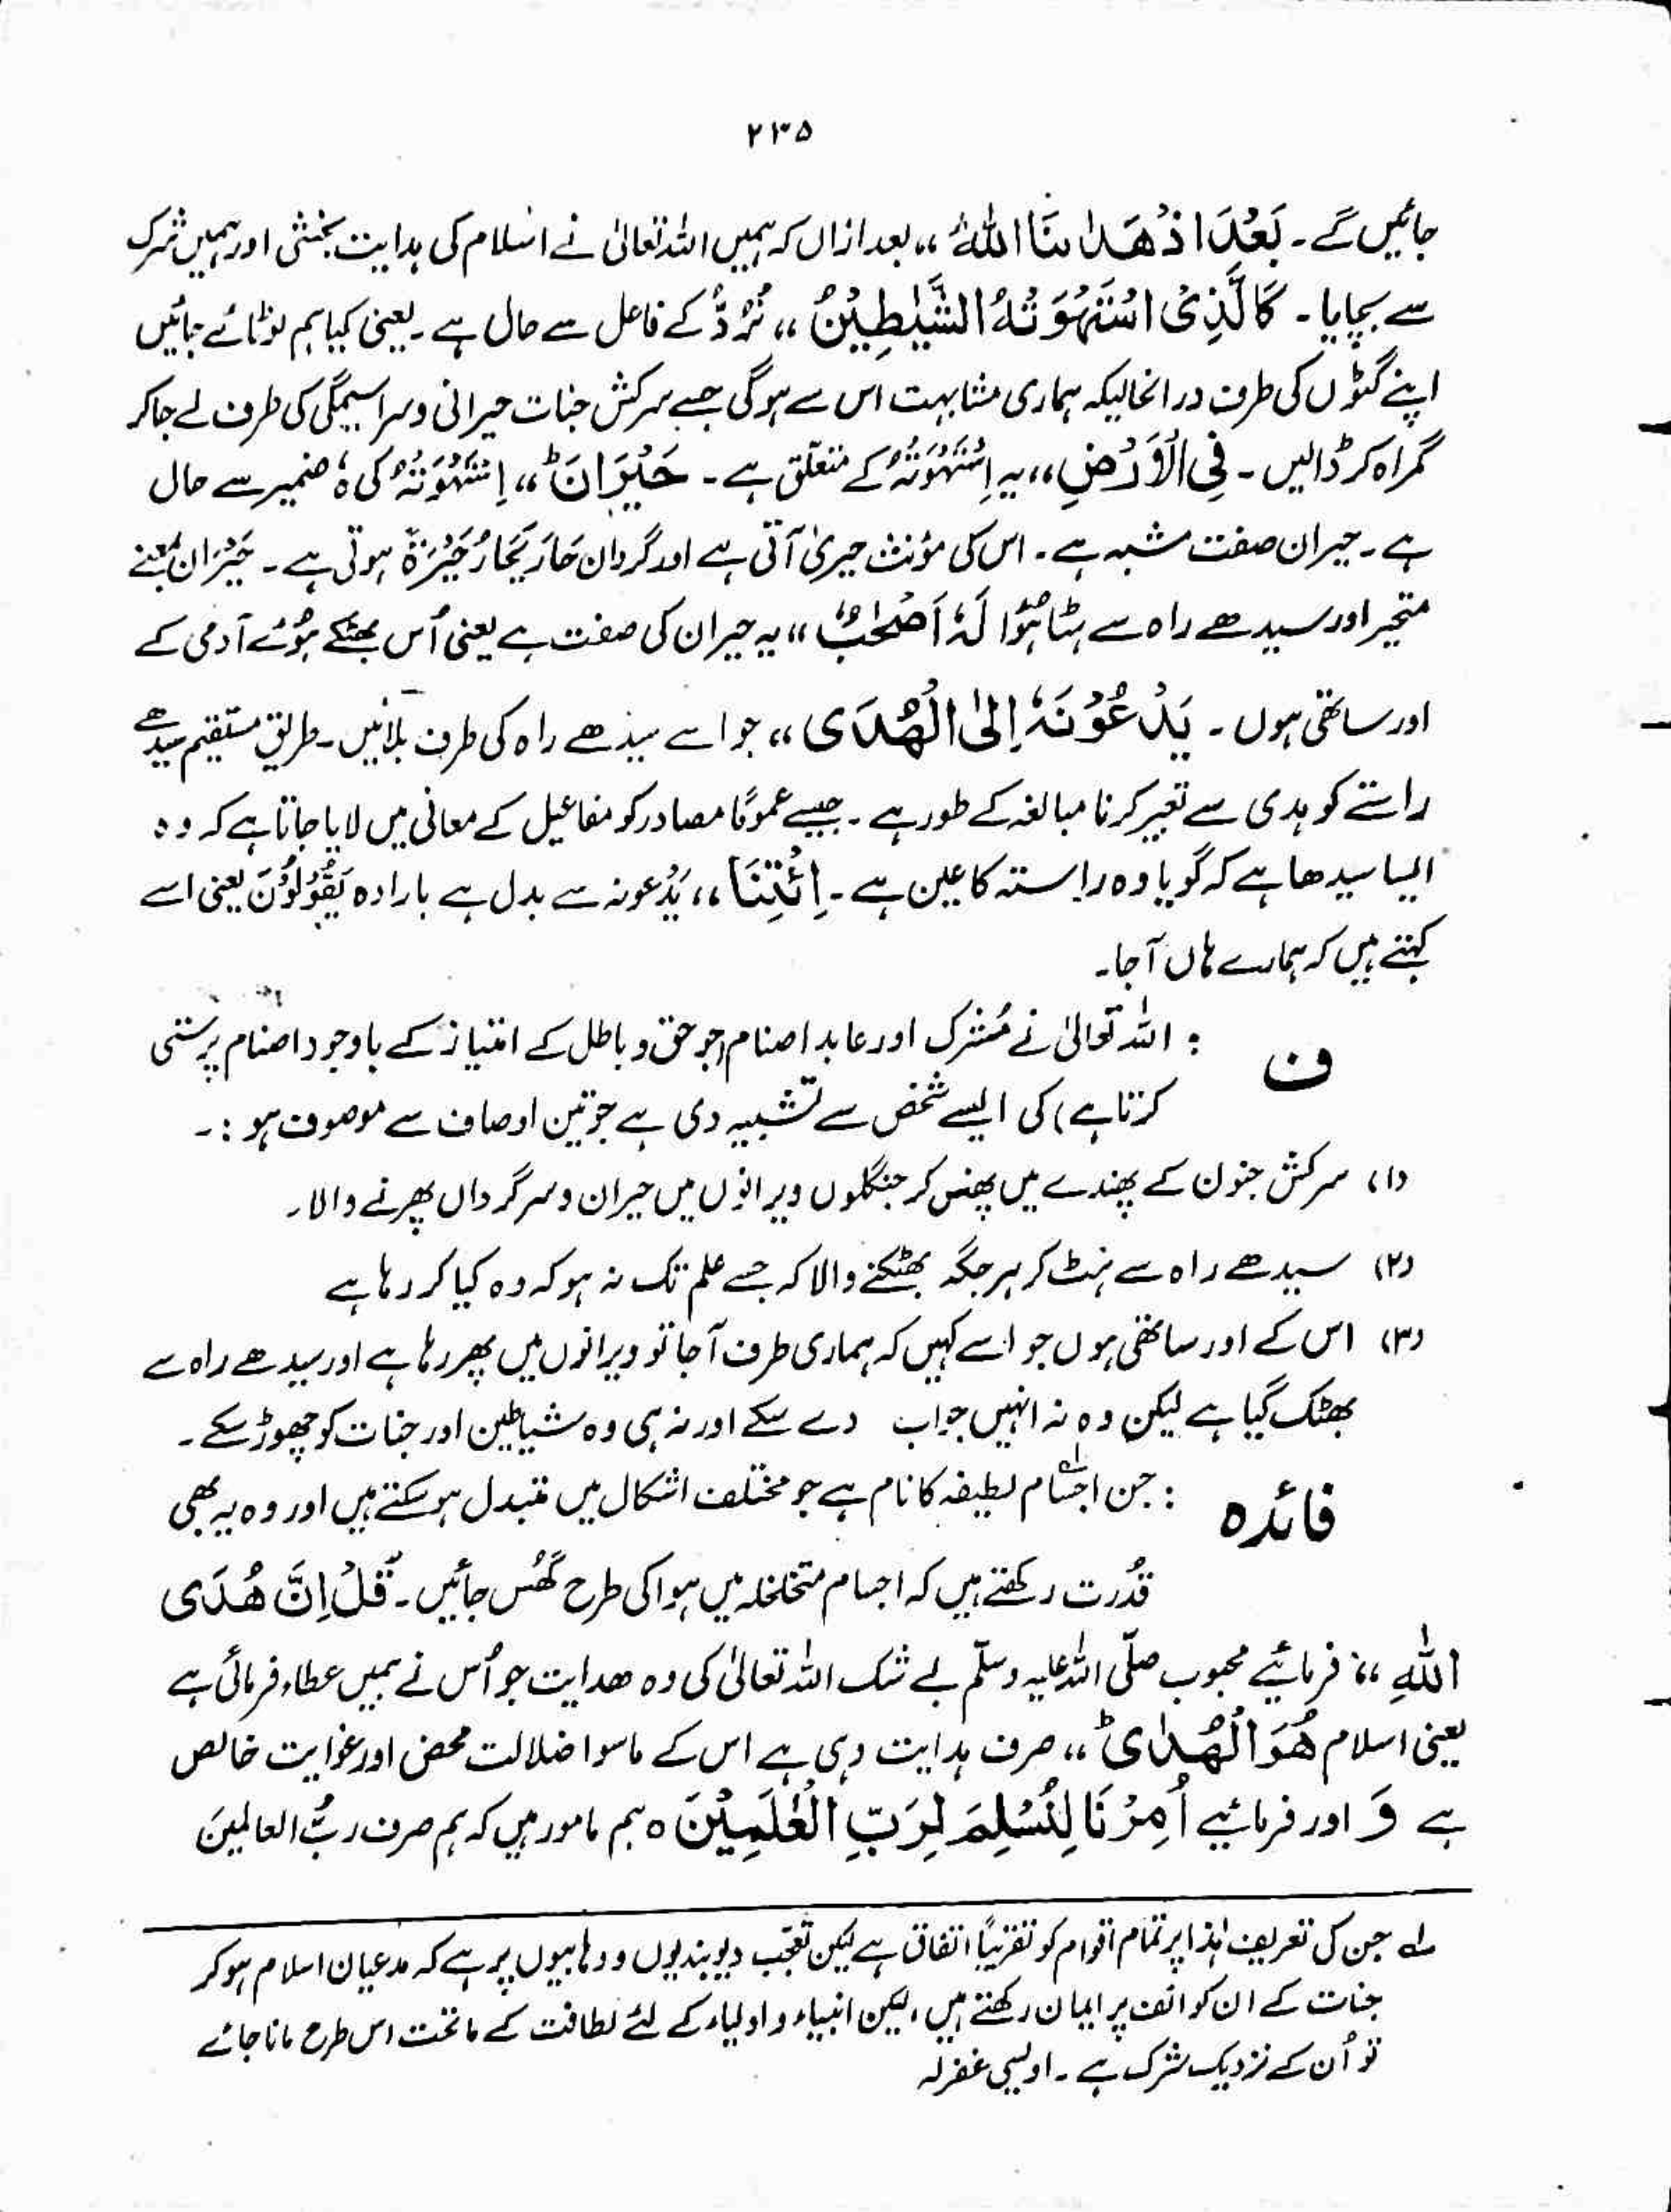 ۲۳۵
جائیں گے۔ بَعْدَ اِذْ ھَدٰىنَا اللّٰهُ ،، بعد ازاں کہ ہمیں اللہ تعالیٰ نے اسلام کی ہدایت بخشی اور ہمیں شرک
سے بچایا۔ کَالَّذِی اسْتَهْوَتْهُ الشَّیٰطِیْنُ ،، نُرَدُّ کے فاعل سے حال ہے۔ یعنی کیا ہم لوٹائے جائیں
اپنے گٹوں کی طرف درانحالیکہ ہماری مشابہت اس سے ہوگی جسے سرکش جنات حیرانی و سراسیمگی کی طرف لے جا کر
گمراہ کر ڈالیں۔ فِی الْاَرْضِ ،، یہ اِسْتَهْوَتْهُ کے متعلّق ہے۔ حَیْرَانَ ؕ ،، اِسْتَهْوَتْهُ کی ہٗ ضمیر سے حال
ہے۔ حیران صفت مشبہ ہے۔ اس کی مؤنث حیریٰ آتی ہے اور گردان حَارَ یَحَارُ حَیْرَۃً ہوتی ہے۔ حَیْرَان بمعنے
متحیر اور سیدھے راہ سے ہٹا ہُوا لَهٗۤ اَصْحٰبٌ ،، یہ حیران کی صفت ہے یعنی اُس بھٹکے ہُوئے آدمی کے
اور ساتھی ہوں۔ یَدْعُوْنَهٗۤ اِلَی الْهُدَی ،، جو اسے سیدھے راہ کی طرف بلائیں۔ طریقِ مستقیم سیدھے
راستے کو ہدی سے تعبیر کرنا مبالغہ کے طور ہے۔ جیسے عمومًا مصادر کو مفاعیل کے معانی میں لایا جاتا ہے کہ وہ
ایسا سیدھا ہے کہ گویا وہ راستہ کا عین ہے۔ اِئْتِنَا ،، یَدْعونہ سے بدل ہے بارادہ یَقُوْلُوْنَ یعنی اسے
کہتے ہیں کہ ہمارے ہاں آجا۔
ف : اللہ تعالیٰ نے مُشرک اور عابد اصنام (جو حق و باطل کے امتیاز کے باوجود اصنام پرستی
کرتا ہے) کی ایسے شخص سے تشبیہ دی ہے جو تین اوصاف سے موصوف ہو :۔
(۱) سرکش جنون کے پھندے میں پھنس کر جنگلوں ویرانوں میں حیران و سرگرداں پھرنے والا۔
(۲) سیدھے راہ سے ہٹ کر ہر جگہ بھٹکنے والا کہ جسے علم تک نہ ہو کہ وہ کیا کر رہا ہے
(۳) اس کے اور ساتھی ہوں جو اسے کہیں کہ ہماری طرف آجا تو ویرانوں میں پھر رہا ہے اور سیدھے راہ سے
بھٹک گیا ہے لیکن وہ نہ انہیں جواب دے سکے اور نہ ہی وہ شیاطین اور جنات کو چھوڑ سکے۔
فائدہ : جن اجسام لطیفہ کا نام ہے جو مختلف اشکال میں متبدل ہوسکتے ہیں اور وہ یہ بھی
قُدرت رکھتے ہیں کہ اجسام متخلخلہ میں ہوا کی طرح گُھس جائیں۔ قُلْ اِنَّ هُدَی
اللّٰهِ ،، فرمائیے محبوب صلّی اللہ علیہ وسلّم بے شک اللہ تعالیٰ کی وہ ھدایت جو اُس نے ہمیں عطاء فرمائی ہے
یعنی اسلام هُوَ الْهُدٰی ؕ ،، صرف ہدایت وہی ہے اس کے ماسوا ضلالت محض اور غوایت خالص
ہے وَ اور فرمائیے اُمِرْنَا لِنُسْلِمَ لِرَبِّ الْعٰلَمِیْنَ ہ ہم مامور ہیں کہ ہم صرف ربُّ العالمینَ
لے جن کی تعریف ہٰذا پر تمام اقوام کو تقریباً اتفاق ہے لیکن تعجّب دیوبندیوں و وہابیوں پر ہے کہ مدعیان اسلام ہو کر
جنات کے ان کوائف پر ایمان رکھتے ہیں، لیکن انبیاء و اولیاء کے لئے لطافت کے ماتحت اس طرح مانا جائے
تو اُن کے نزدیک شرک ہے۔ اویسی غفرلہ